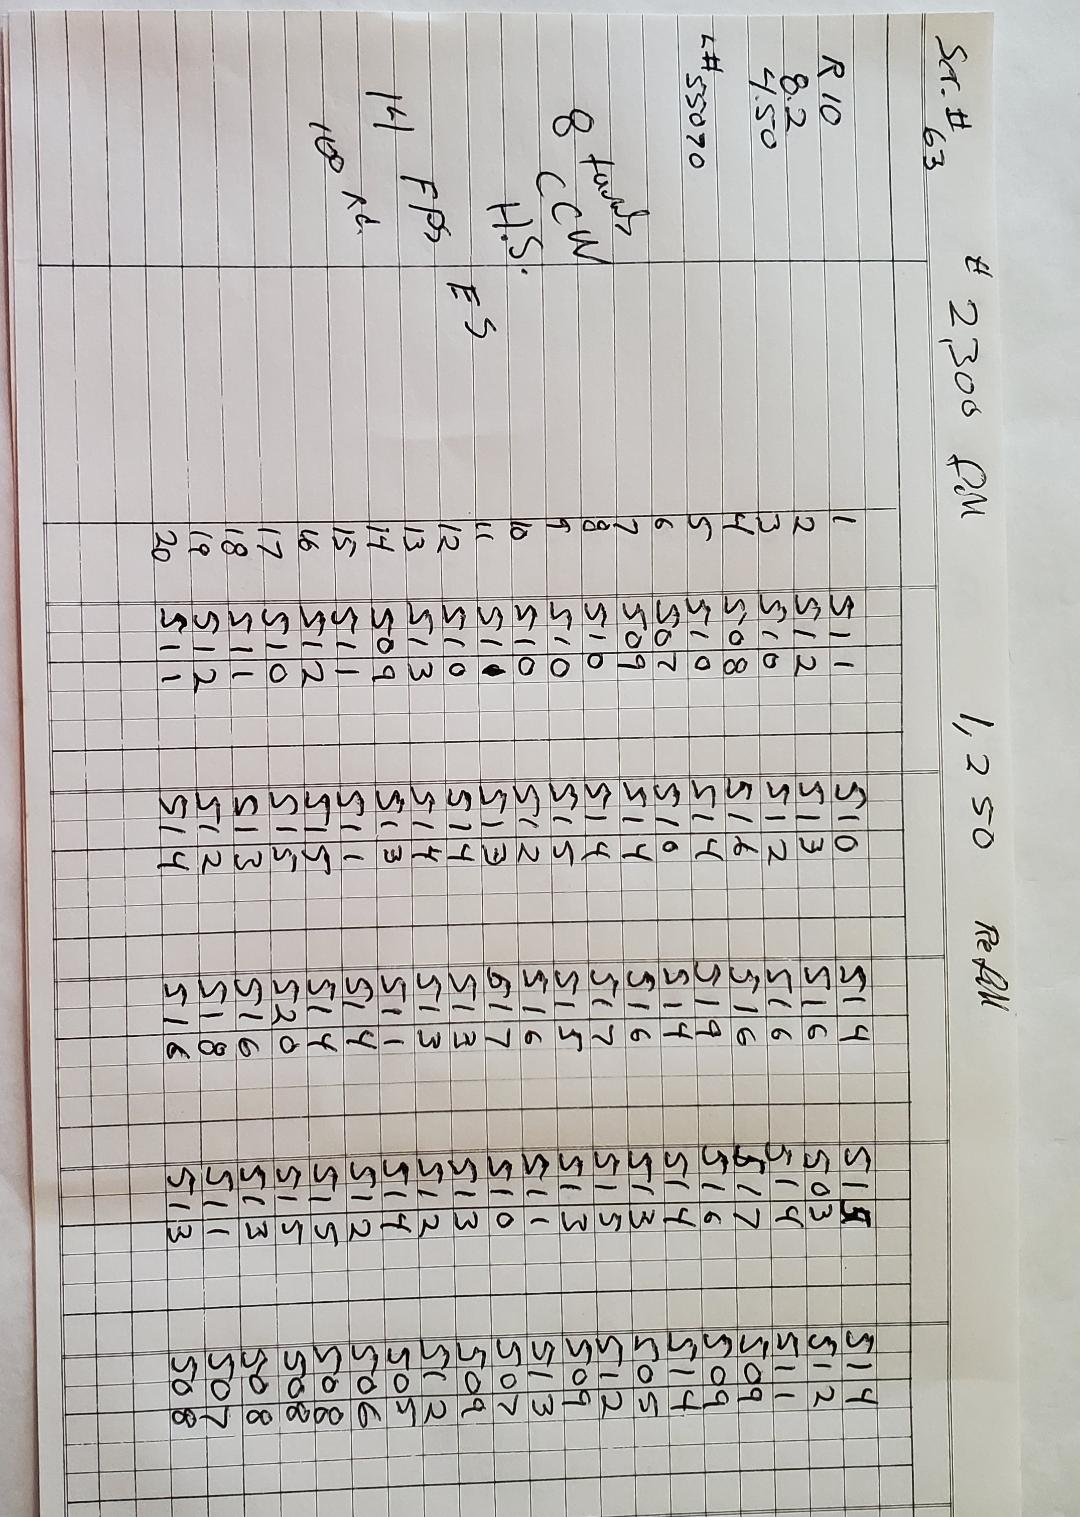 Ser. # 63 # 2300 fill 1,250 Refill
R10
8.2
4.50
L# 55070
8 turns
CCW
H.S.
ES
14 FPS
100 Rd.
1 511 510 514 515 514
2 512 513 516 503 512
3 510 512 516 514 511
4 508 516 516 517 509
5 510 514 519 516 509
6 507 510 514 514 514
7 509 514 516 513 505
8 510 514 517 515 512
9 510 515 515 513 509
10 510 512 516 511 513
11 51 513 517 510 507
12 510 514 513 513 509
13 513 514 513 512 512
14 509 513 511 514 505
15 511 511 514 512 506
16 512 515 514 515 508
17 510 515 520 515 508
18 511 513 516 513 508
19 512 512 518 511 507
20 511 514 516 513 508